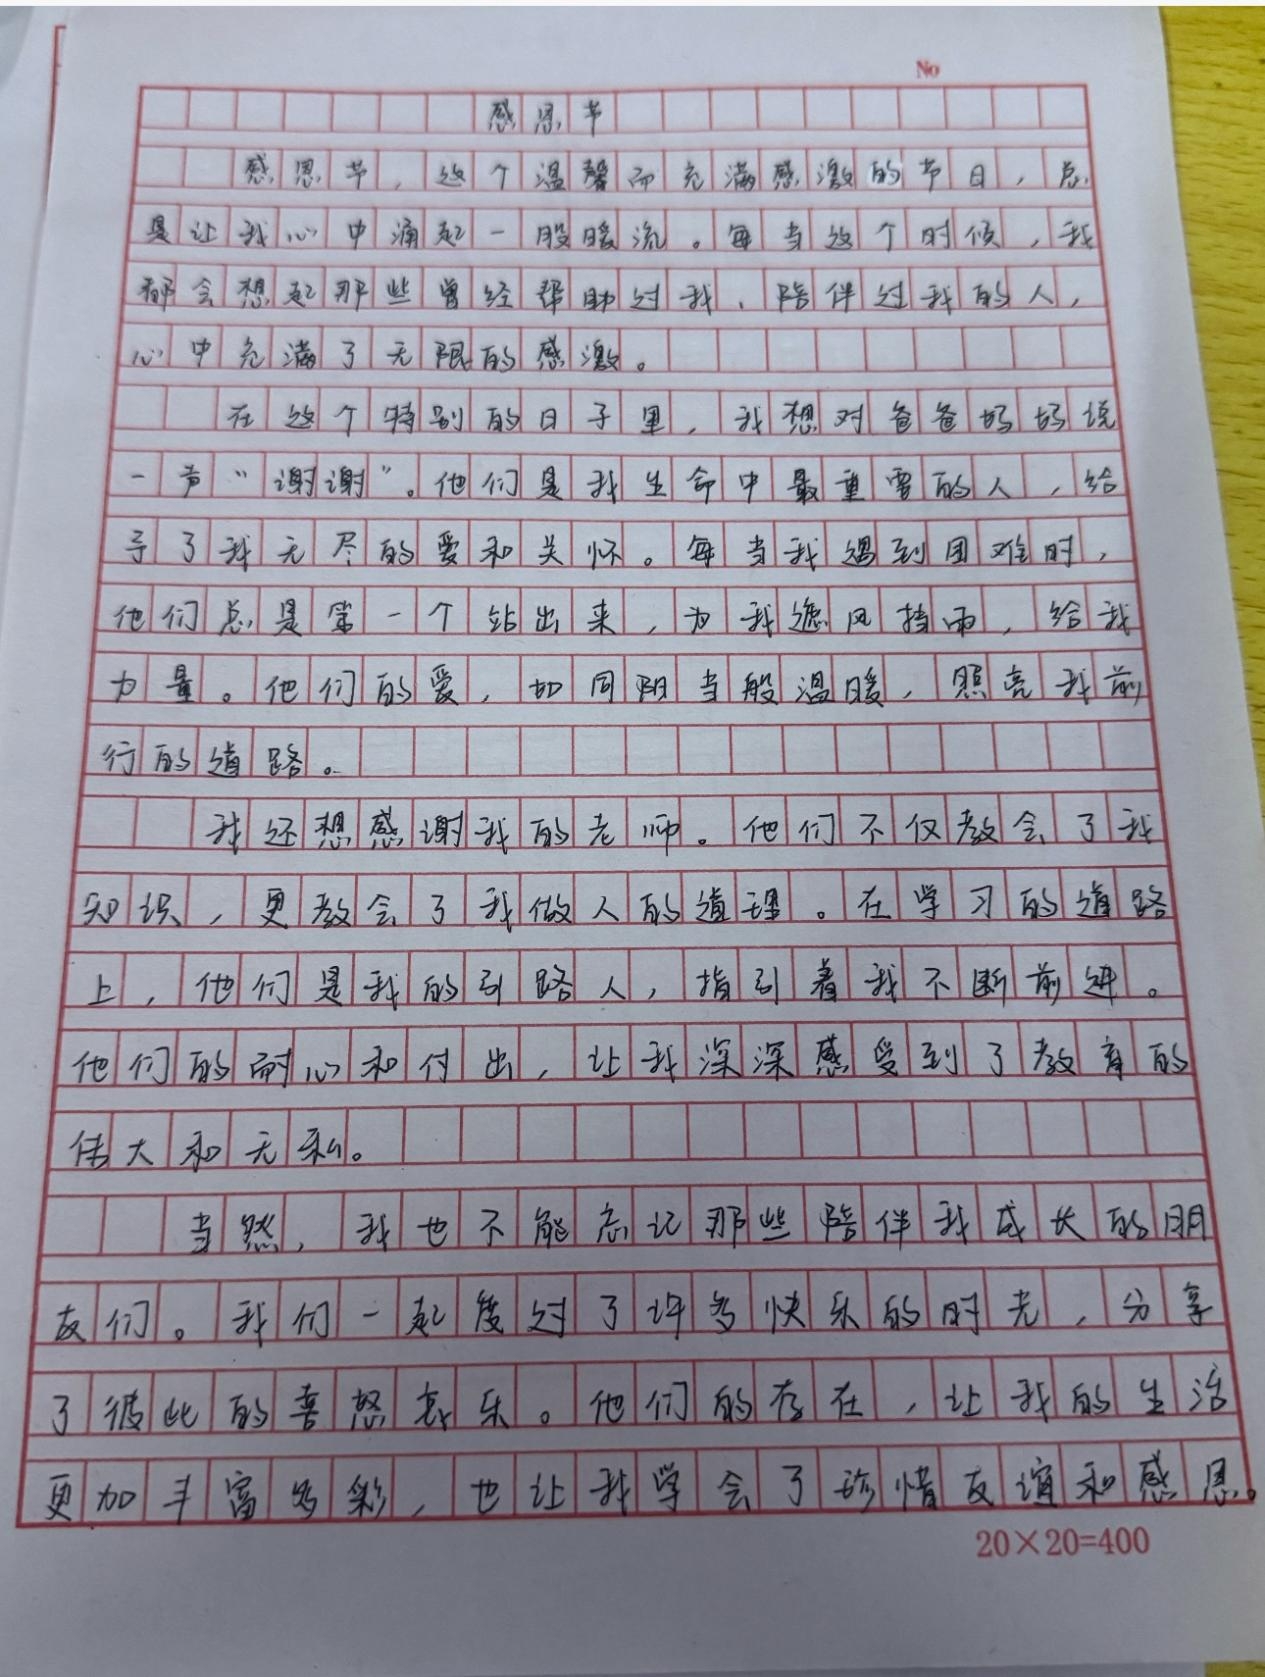 No
感恩节
感恩节，这个温馨而充满感激的节日，总
是让我心中涌起一股暖流。每当这个时候，我
都会想起那些曾经帮助过我、陪伴过我的人，
心中充满了无限的感激。
在这个特别的日子里，我想对爸爸妈妈说
一声“谢谢”。他们是我生命中最重要的人，给
予了我无尽的爱和关怀。每当我遇到困难时，
他们总是第一个站出来，为我遮风挡雨，给我
力量。他们的爱，如同阳当般温暖，照亮我前
行的道路。
我还想感谢我的老师。他们不仅教会了我
知识，更教会了我做人的道理。在学习的道路
上，他们是我的引路人，指引着我不断前进。
他们的耐心和付出，让我深深感受到了教育的
伟大和无私。
当然，我也不能忘记那些陪伴我成长的朋
友们。我们一起度过了许多快乐的时光，分享
了彼此的喜怒哀乐。他们的存在，让我的生活
更加丰富多彩，也让我学会了珍惜友谊和感恩。
20×20=400